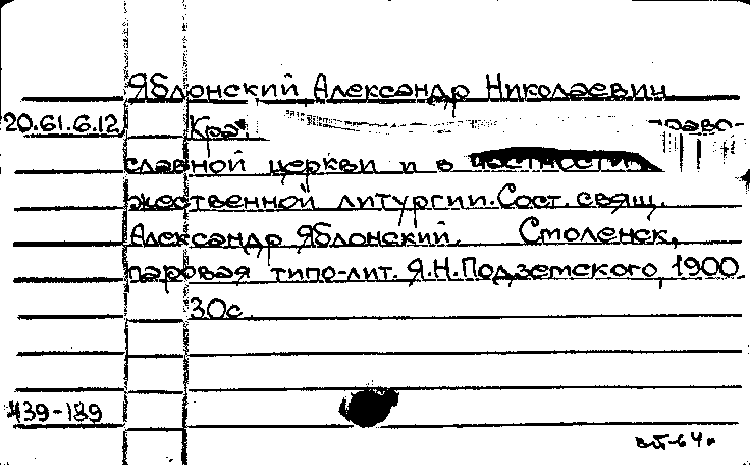 Яблонский, Александр Николаевич
20.61.6.12 Кра право-
славной церкви и в частности
жественной литургии. Сост. свящ.
Александр Яблонский. Смоленск,
паровая типо-лит. Я.Н.Подземского, 1900.
30с.
439-189